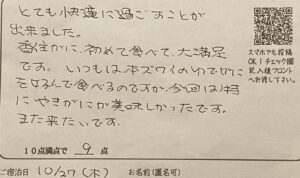 とても快適に過ごすことが
出来ました。
香住がに、初めて食べて、大満足
です。いつもは、本ズワイのゆでがに
をなんで食べるのですが、今回は特
にやきがにが美味しかったです。
また来たいです。
スマホでも投稿
OK！チェック欄
記入後フロント
へお渡し下さい。
10点満点で 9 点
ご宿泊日 10/27（木） お名前（匿名可）